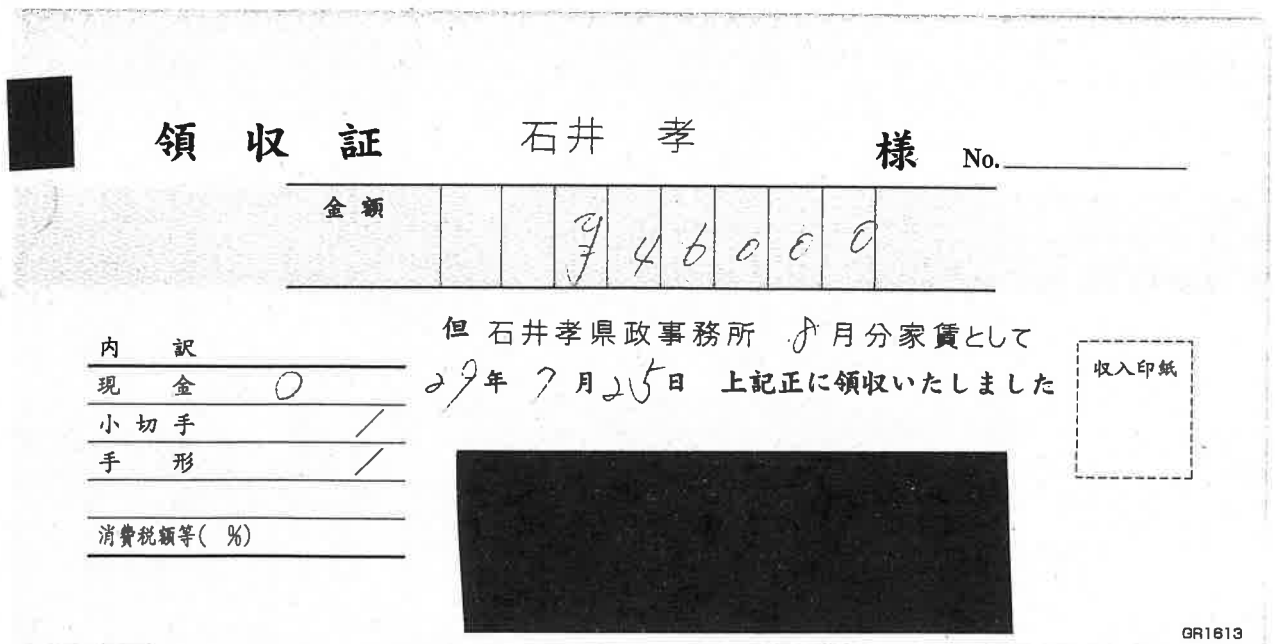 領収証 石井 孝 様 No.
金額 ¥46000
但 石井孝県政事務所 8月分家賃として
29年7月25日 上記正に領収いたしました
内訳
現金 0
小切手 /
手形 /
消費税額等( %)
収入印紙
GR1613